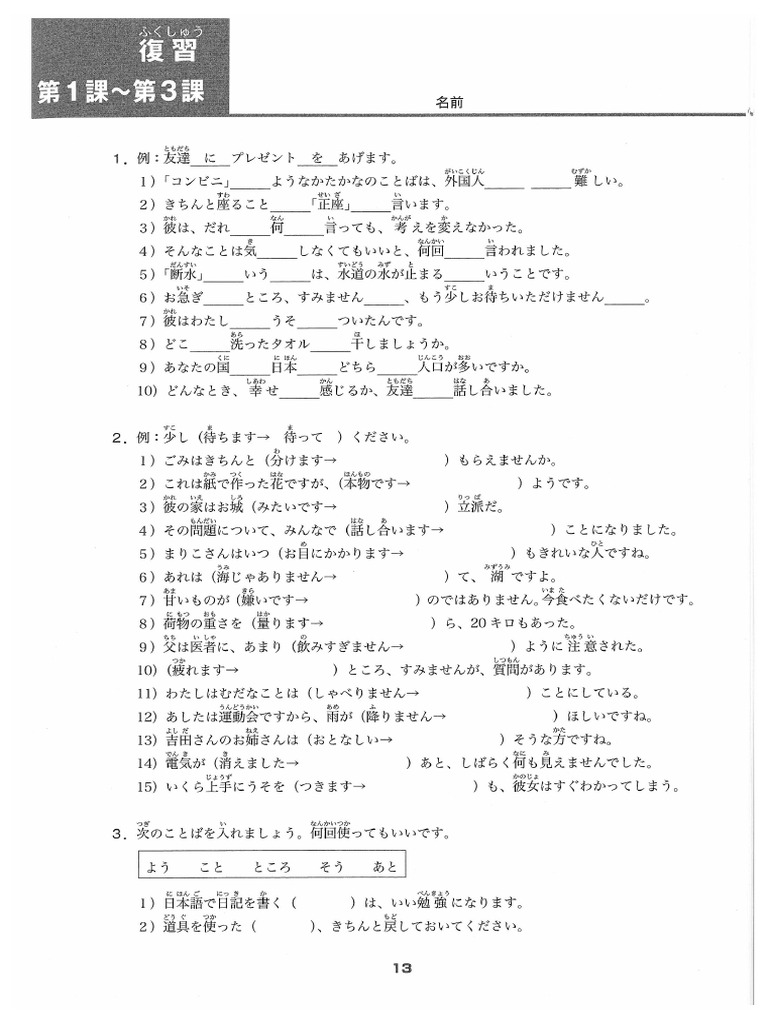 復習
第1課〜第3課
名前
1．例：友達　に　プレゼント　を　あげます。
1）「コンビニ」＿＿＿ようなかたかなのことばは、外国人＿＿＿　＿＿＿難しい。
2）きちんと座ること＿＿＿「正座」＿＿＿言います。
3）彼は、だれ＿＿＿何＿＿＿言っても、考えを変えなかった。
4）そんなことは気＿＿＿しなくてもいいと、何回＿＿＿言われました。
5）「断水」＿＿＿いう＿＿＿は、水道の水が止まる＿＿＿いうことです。
6）お急ぎ＿＿＿ところ、すみません＿＿＿、もう少しお待ちいただけません＿＿＿。
7）彼はわたし＿＿＿うそ＿＿＿ついたんです。
8）どこ＿＿＿洗ったタオル＿＿＿干しましょうか。
9）あなたの国＿＿＿日本＿＿＿どちら＿＿＿人口が多いですか。
10）どんなとき、幸せ＿＿＿感じるか、友達＿＿＿話し合いました。
2．例：少し（待ちます→　待って　）ください。
1）ごみはきちんと（分けます→　　　　　）もらえませんか。
2）これは紙で作った花ですが、（本物です→　　　　　）ようです。
3）彼の家はお城（みたいです→　　　　　）立派だ。
4）その問題について、みんなで（話し合います→　　　　　）ことになりました。
5）まりこさんはいつ（お目にかかります→　　　　　）もきれいな人ですね。
6）あれは（海じゃありません→　　　　　）て、湖ですよ。
7）甘いものが（嫌いです→　　　　　）のではありません。今食べたくないだけです。
8）荷物の重さを（量ります→　　　　　）ら、20キロもあった。
9）父は医者に、あまり（飲みすぎません→　　　　　）ように注意された。
10）（疲れます→　　　　　）ところ、すみませんが、質問があります。
11）わたしはむだなことは（しゃべりません→　　　　　）ことにしている。
12）あしたは運動会ですから、雨が（降りません→　　　　　）ほしいですね。
13）吉田さんのお姉さんは（おとなしい→　　　　　）そうな方ですね。
14）電気が（消えました→　　　　　）あと、しばらく何も見えませんでした。
15）いくら上手にうそを（つきます→　　　　　）も、彼女はすぐわかってしまう。
3．次のことばを入れましょう。何回使ってもいいです。
よう　こと　ところ　そう　あと
1）日本語で日記を書く（　　　）は、いい勉強になります。
2）道具を使った（　　　）、きちんと戻しておいてください。
13